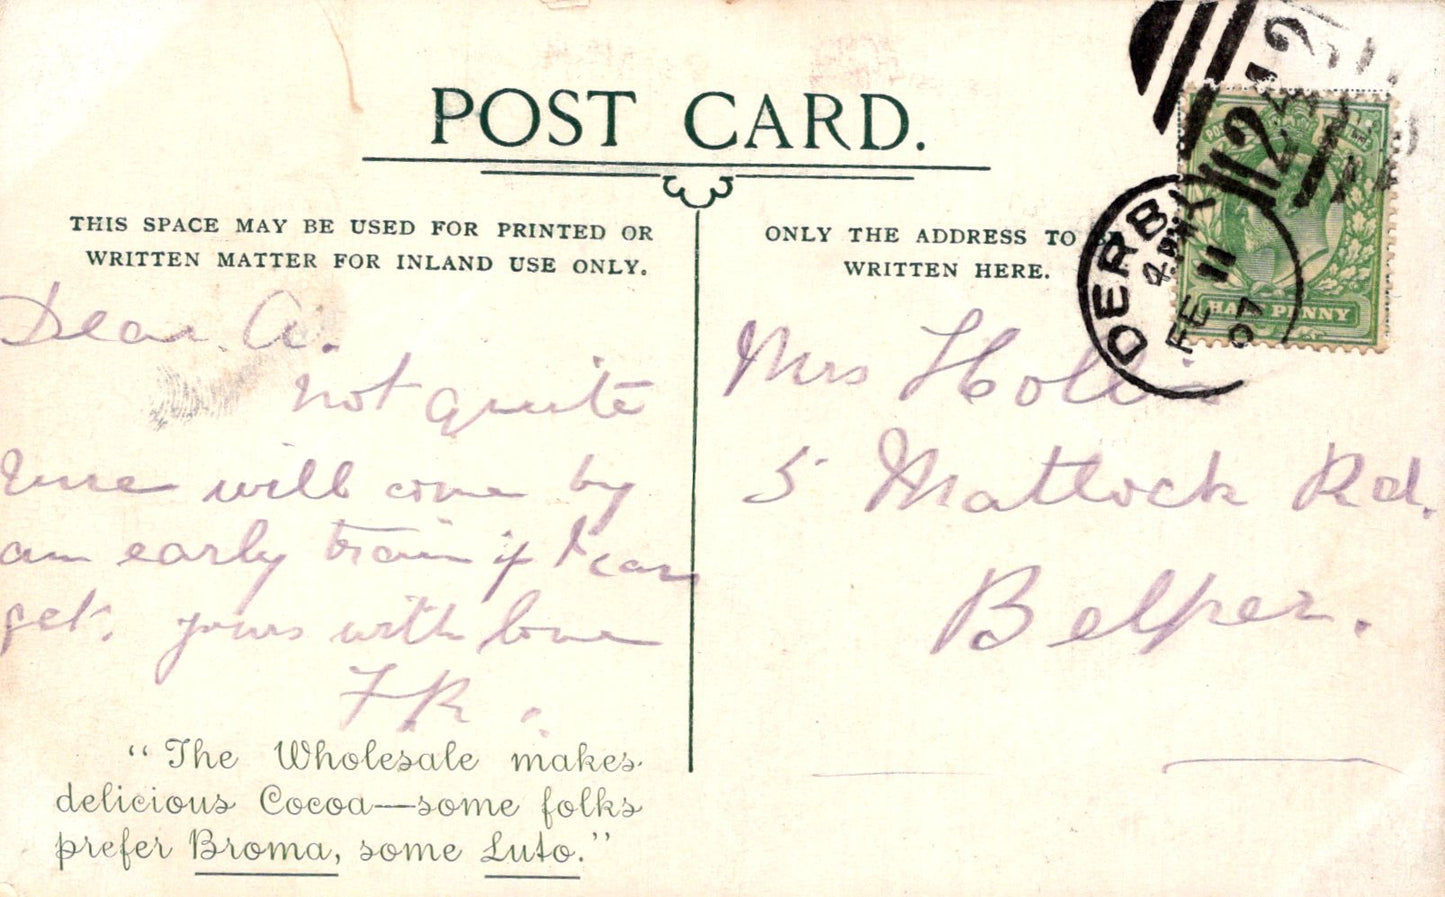 POST CARD.
THIS SPACE MAY BE USED FOR PRINTED OR
WRITTEN MATTER FOR INLAND USE ONLY.
Dear A.
not quite
sure will come by
an early train if I can
get. yours with love
F.R.
"The Wholesale makes
delicious Cocoa—some folks
prefer Broma, some Luto."
ONLY THE ADDRESS TO BE
WRITTEN HERE.
Mrs Hollis
5 Matlock Rd.
Belper.
DERBY
4.PM
FE 11
07
HALF PENNY